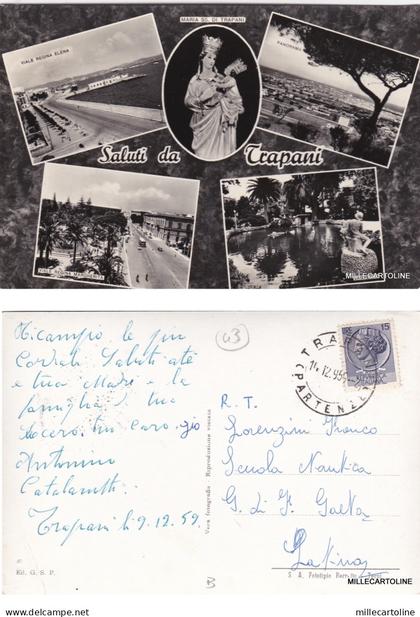 MARIA SS. DI TRAPANI
VIALE REGINA ELENA
PANORAMA
Saluti da Trapani
VIALE REGINA MARGHERITA
MILLECARTOLINE
43
Ricambio le più
Cordiali Saluti a te
e tua Madre e la
famiglia di tuo
suocero, tuo caro zio
Antonino
Trapani lì 9.12.59
Ed. G. S. P.
Vera fotografia - Riproduzione vietata
15
TRAPANI
(PARTENZE)
R. T.
Lorenzini Franco
Scuola Nautica
G. di F. Gaeta
Latina
S. A. Fototipia
MILLECARTOLINE
B